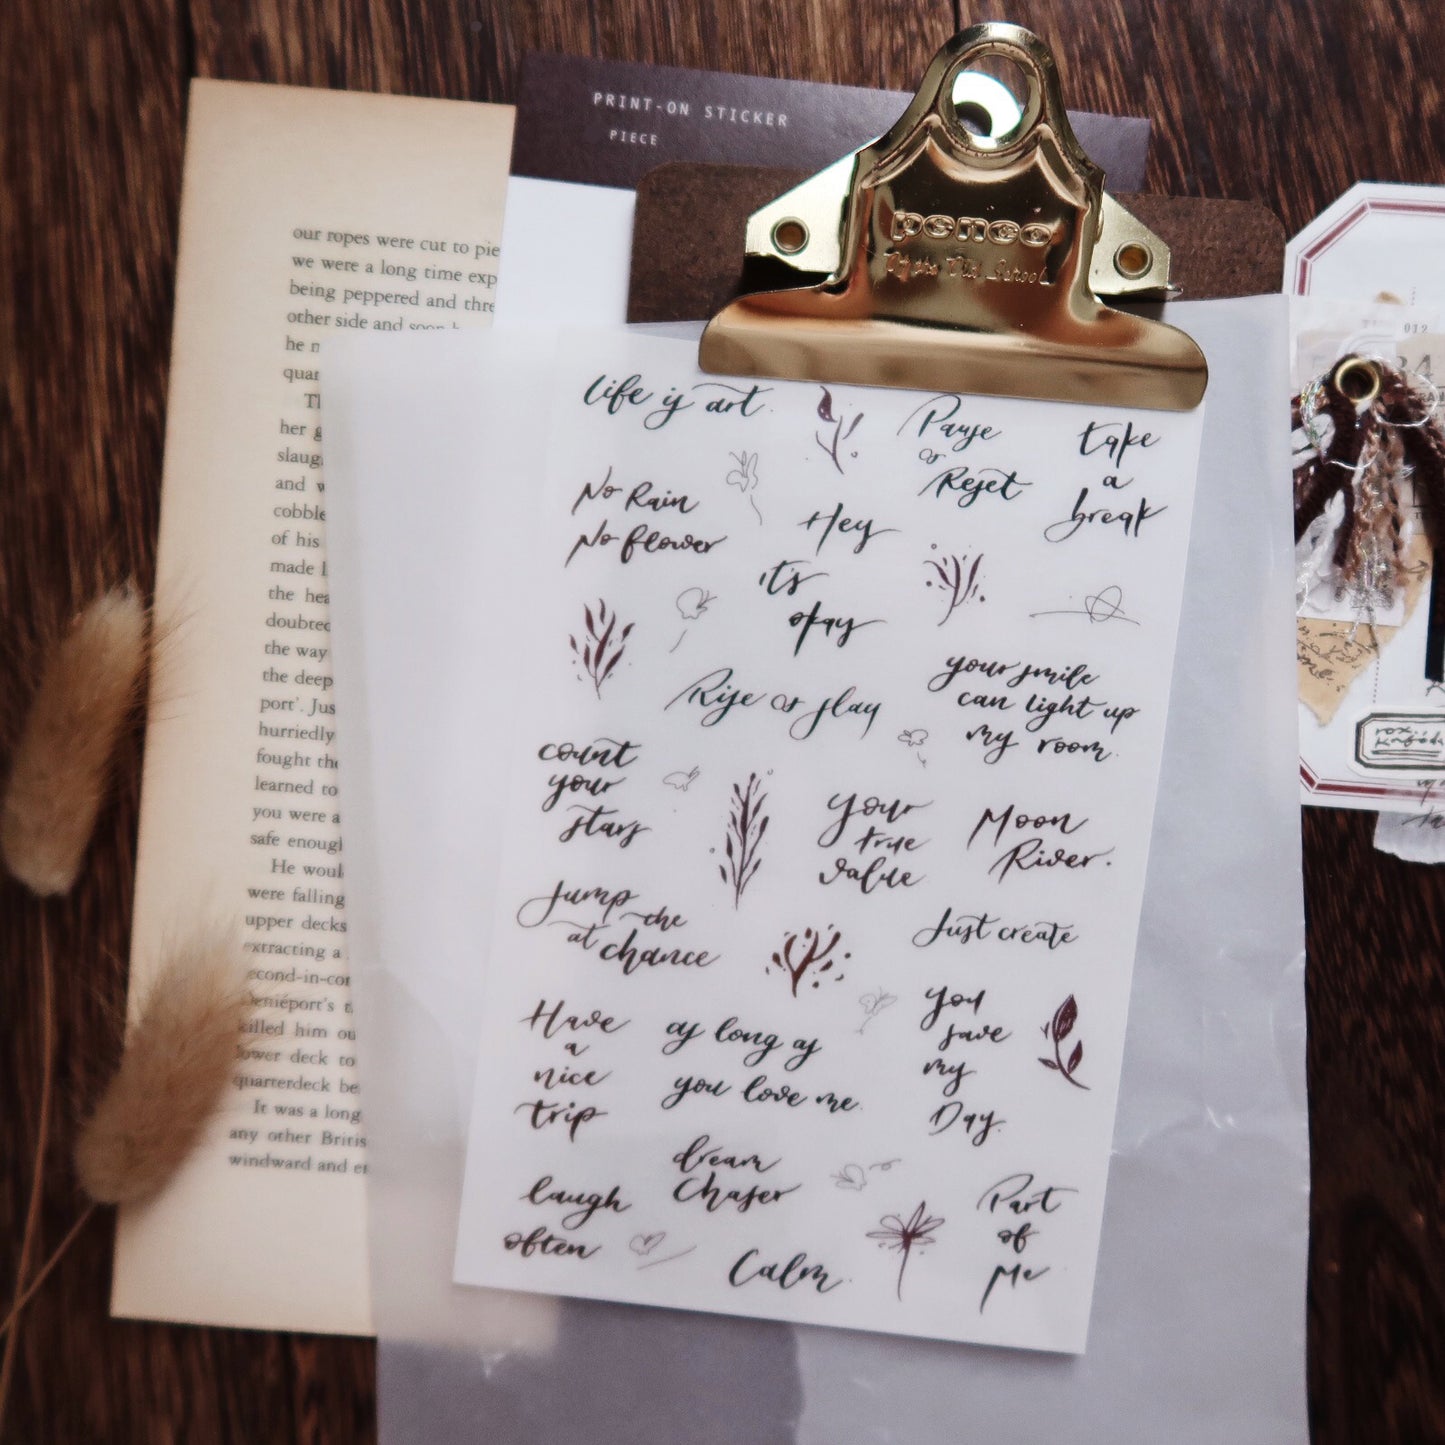 PRINT-ON STICKER
PIECE
penco
Old School
our ropes were cut to pie
we were a long time exp
being peppered and thre
other side and soon
he
quar
her
slaug
and
cobble
of his
made
the hea
doubted
the way
the deep
port'. Jus
hurriedly
fought the
learned to
you were a
safe enough
He woul
were falling
upper decks
extracting a
econd-in-cor
Deniéport's
killed him ou
lower deck to
quarterdeck be
It was a long
any other Britis
windward and
life is art.
Pause
&
Reset
take
a
break
No Rain
No flower
Hey
it's
okay
your smile
can light up
my room.
Rise & slay
count
your
stars
your
true
value
Moon
River.
Jump
at the
chance
Just create
Have
a
nice
trip
as long as
you love me.
you
save
my
Day.
dream
Chaser
laugh
often
Calm.
Part
of
Me
012